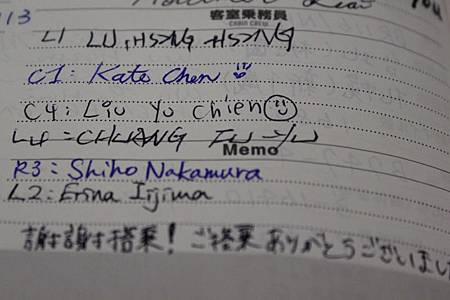 you
13
客室乗務員
CABIN CREW
L1 LU, HSING HSING
C1: Kate Chen
C4: Liu Yu chien
L4 = CHUANG FU YU
Memo
R3: Shiho Nakamura
L2: Erina Iijima
謝謝搭乗! ご搭乗ありがとうございまし